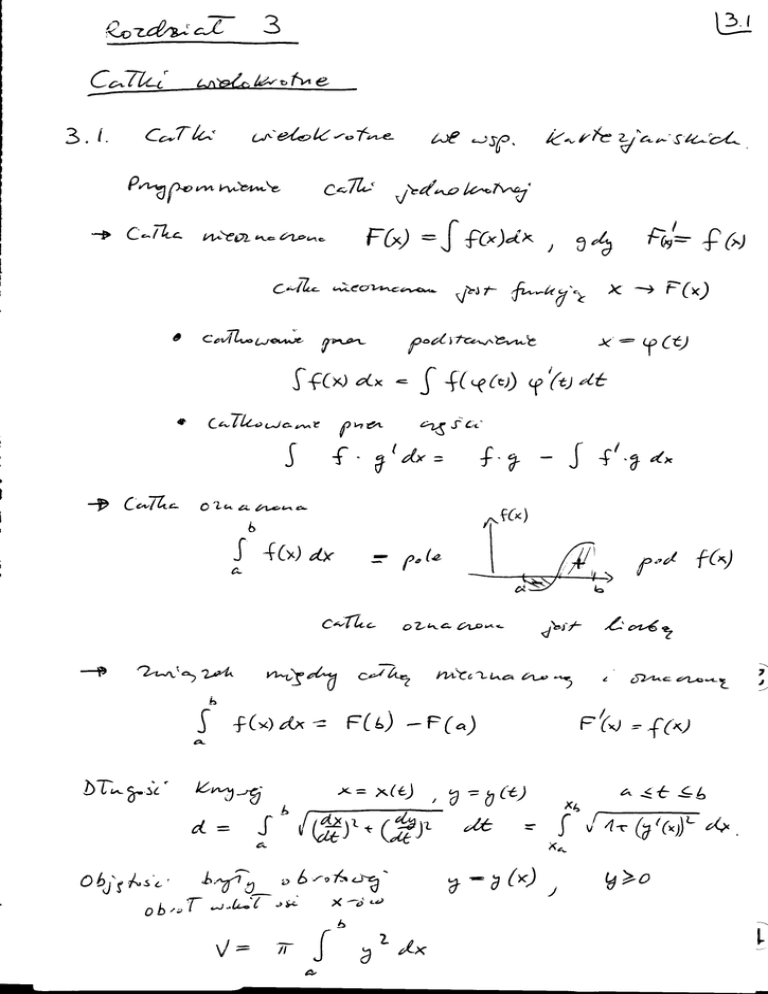 Rozdział 3
3.1
Całki wielokrotne
3.1. Całki wielokrotne we wsp. Kartezjańskich.
Przypomnienie całki jednokrotnej
→ Całka nieoznaczona F(x) = ∫ f(x)dx , gdy F'(x) = f(x)
całka nieoznaczona jest funkcją x → F(x)
• całkowanie przez podstawienie x = φ(t)
∫ f(x) dx = ∫ f(φ(t)) φ'(t) dt
• całkowanie przez części
∫ f · g' dx = f·g - ∫ f'·g dx
→ Całka oznaczona
∫_a^b f(x) dx = pole f(x) a b pod f(x)
całka oznaczona jest liczbą
→ związek między całką nieoznaczoną i oznaczoną
∫_a^b f(x) dx = F(b) - F(a) F'(x) = f(x)
Długość krzywej x = x(t) , y = y(t) a ≤ t ≤ b
d = ∫_a^b √((dx/dt)² + (dy/dt)²) dt = ∫_{x_a}^{x_b} √(1 + (y'(x))²) dx.
Objętość bryły obrotowej y = y(x) , y ≥ 0
obrót wokół osi x-ów
V = π ∫_a^b y² dx